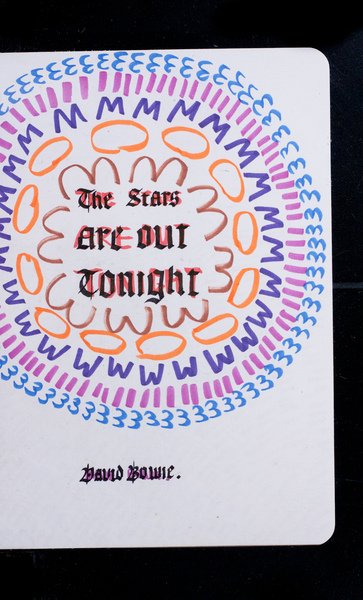 The Stars
Are Out
Tonight
David Bowie.